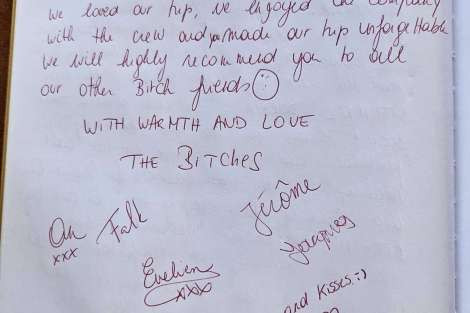 we loved our trip, we enjoyed the company
with the crew and you made our trip unforgettable
we will highly recommend you to all
our other Bitch friends
WITH WARMTH AND LOVE
THE BITCHES
An
xxx
Falk
Jérôme
Evelien
xxx
and kisses :)